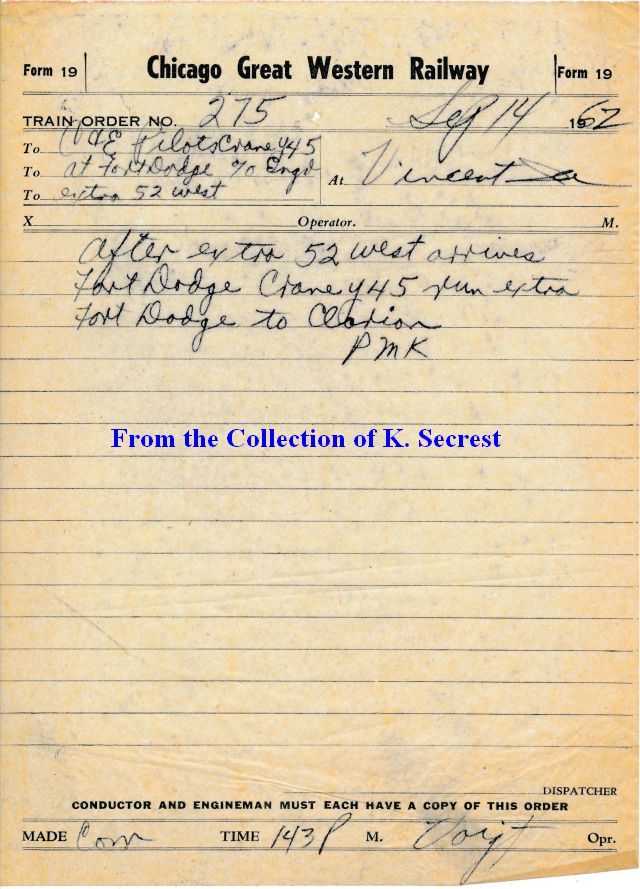 Form 19 Chicago Great Western Railway Form 19
TRAIN ORDER NO. 275 Sep 14 1962
To C&E Pilots Crane Y45
To at Fort Dodge c/o Engr
To extra 52 west At Vincent Ia
X Operator. M.
After extra 52 west arrives
Fort Dodge Crane Y45 run extra
Fort Dodge to Clarion
PMK
From the Collection of K. Secrest
DISPATCHER
CONDUCTOR AND ENGINEMAN MUST EACH HAVE A COPY OF THIS ORDER
MADE Com TIME 143 P M. Voigt Opr.